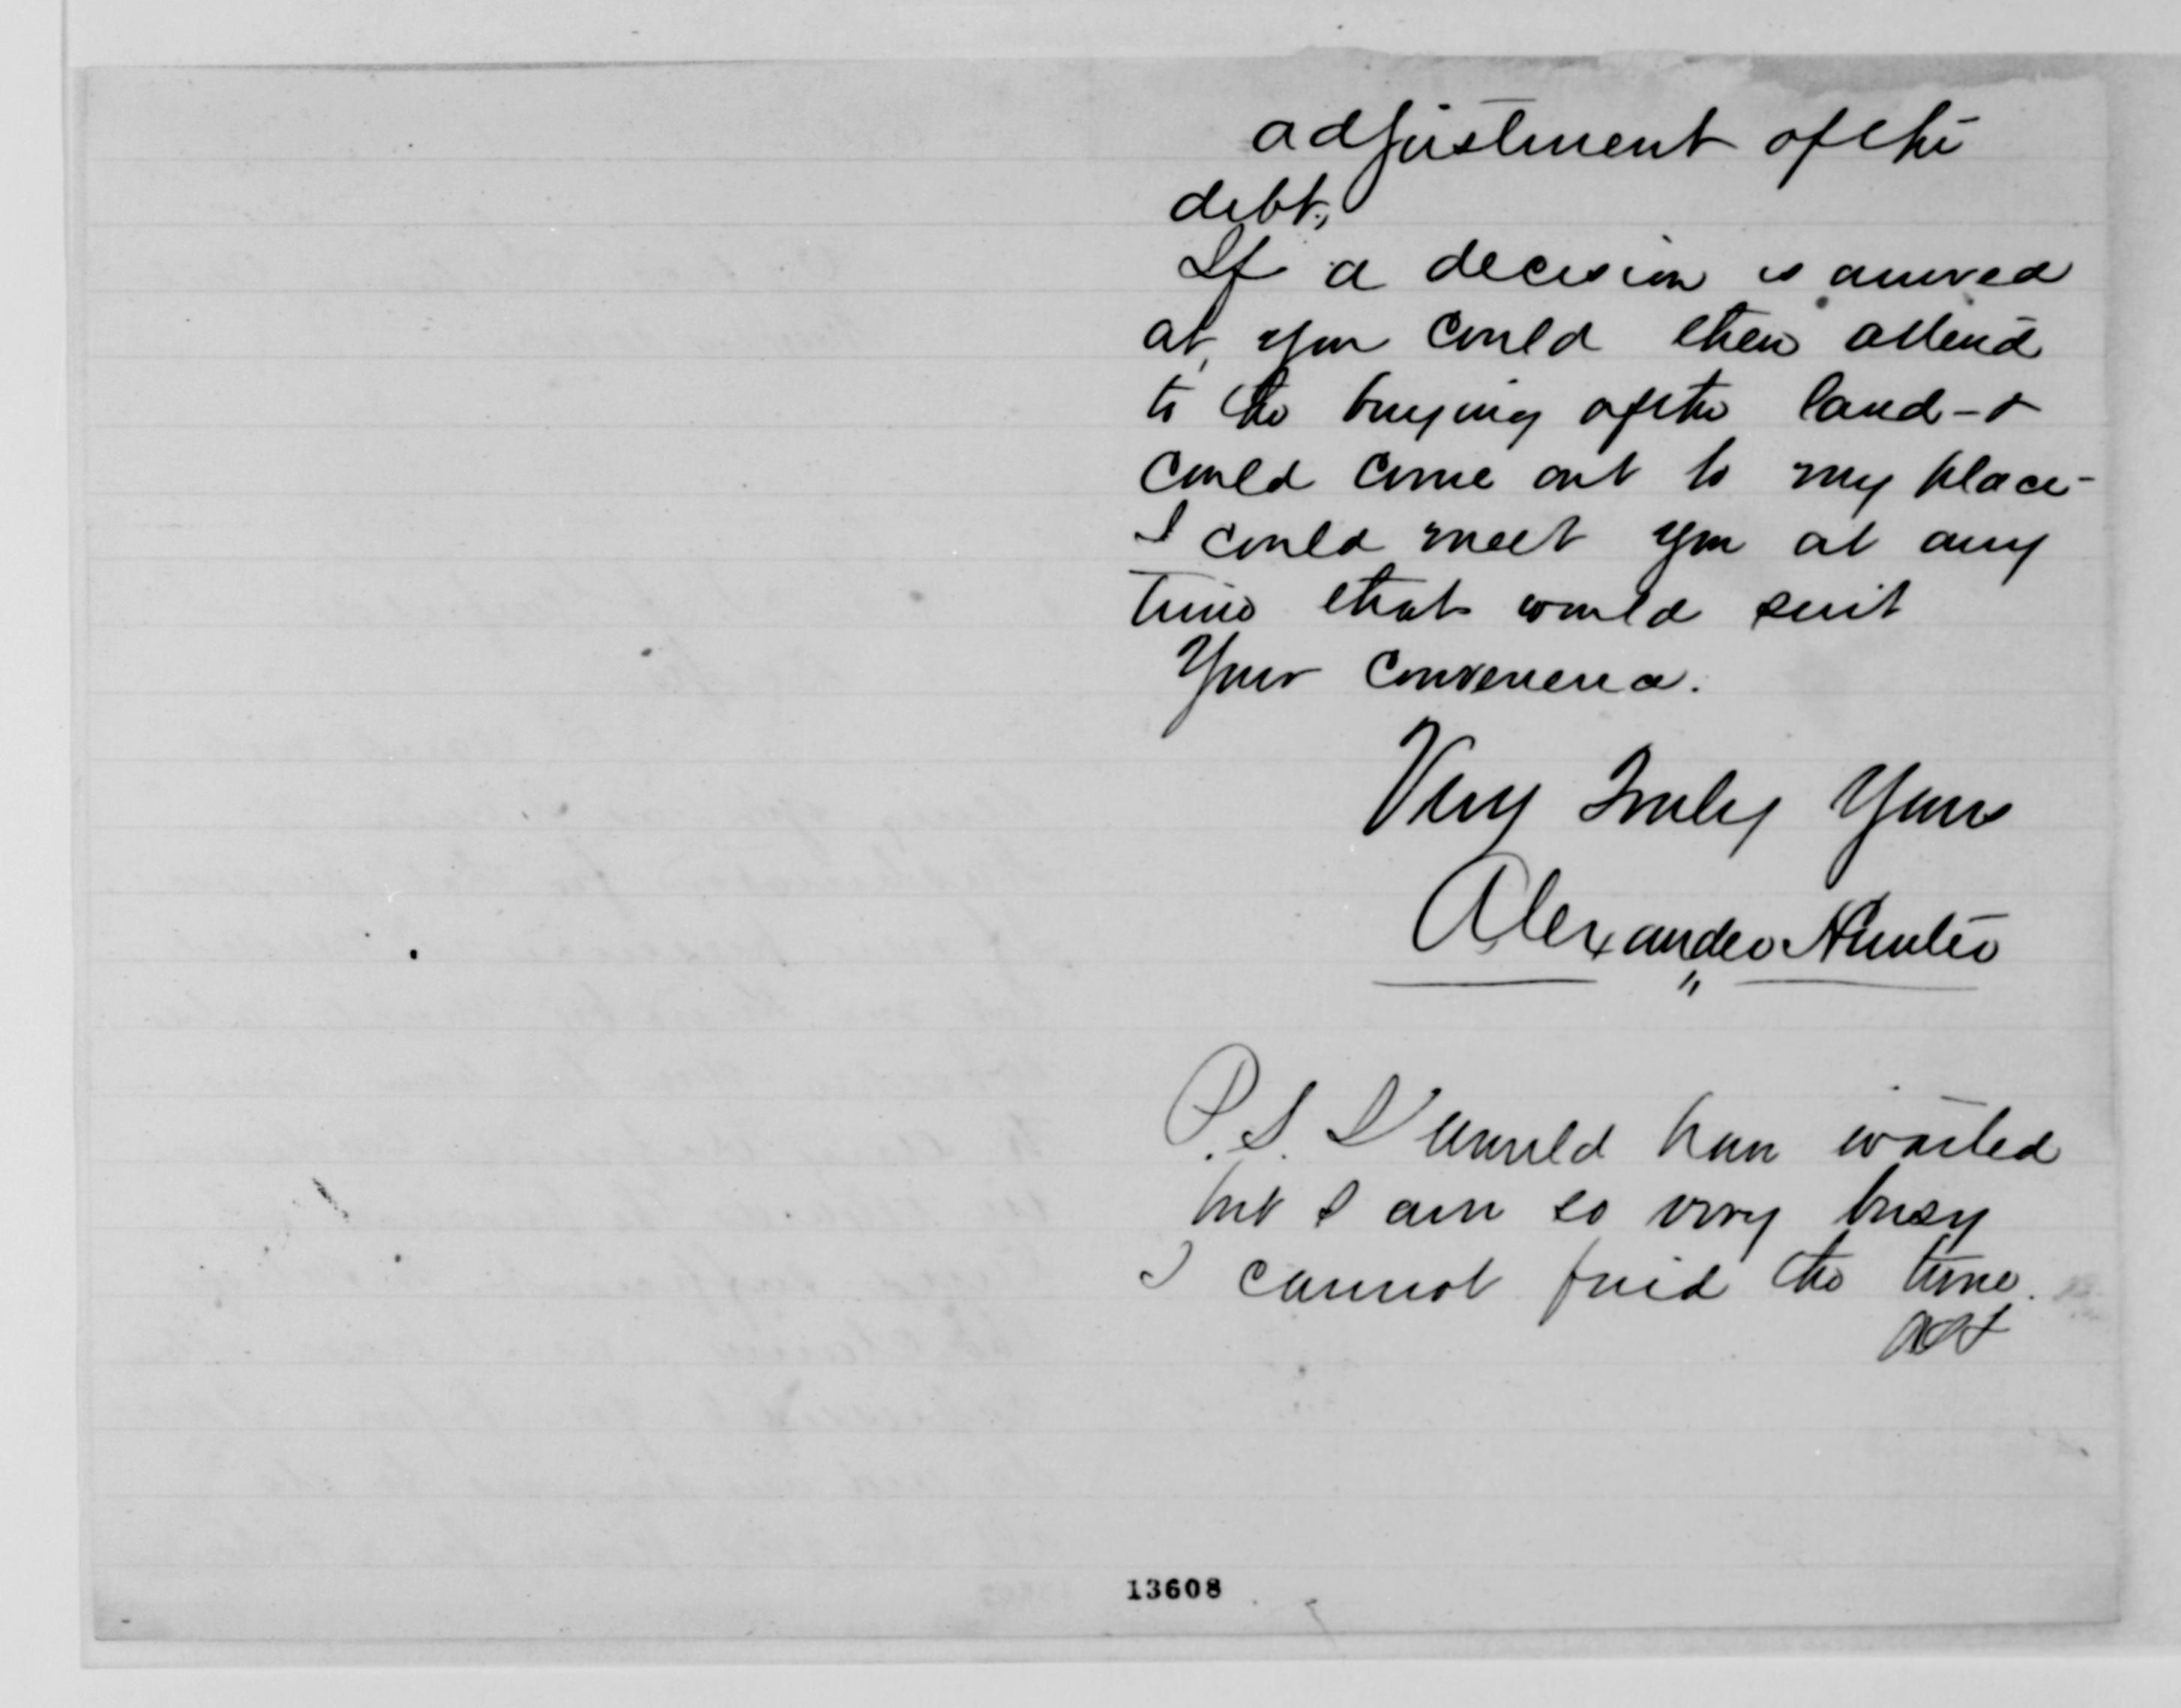 adjustment of the
debt,
If a decision is arrived
at, you could then attend
to the buying of the land - &
could come out to my place -
I could meet you at any
time that would suit
Your convenience.
Very Truly Yours
Alexander Hunter
P.S. I would have waited
but I am so very busy
I cannot find the time.
AH
13608